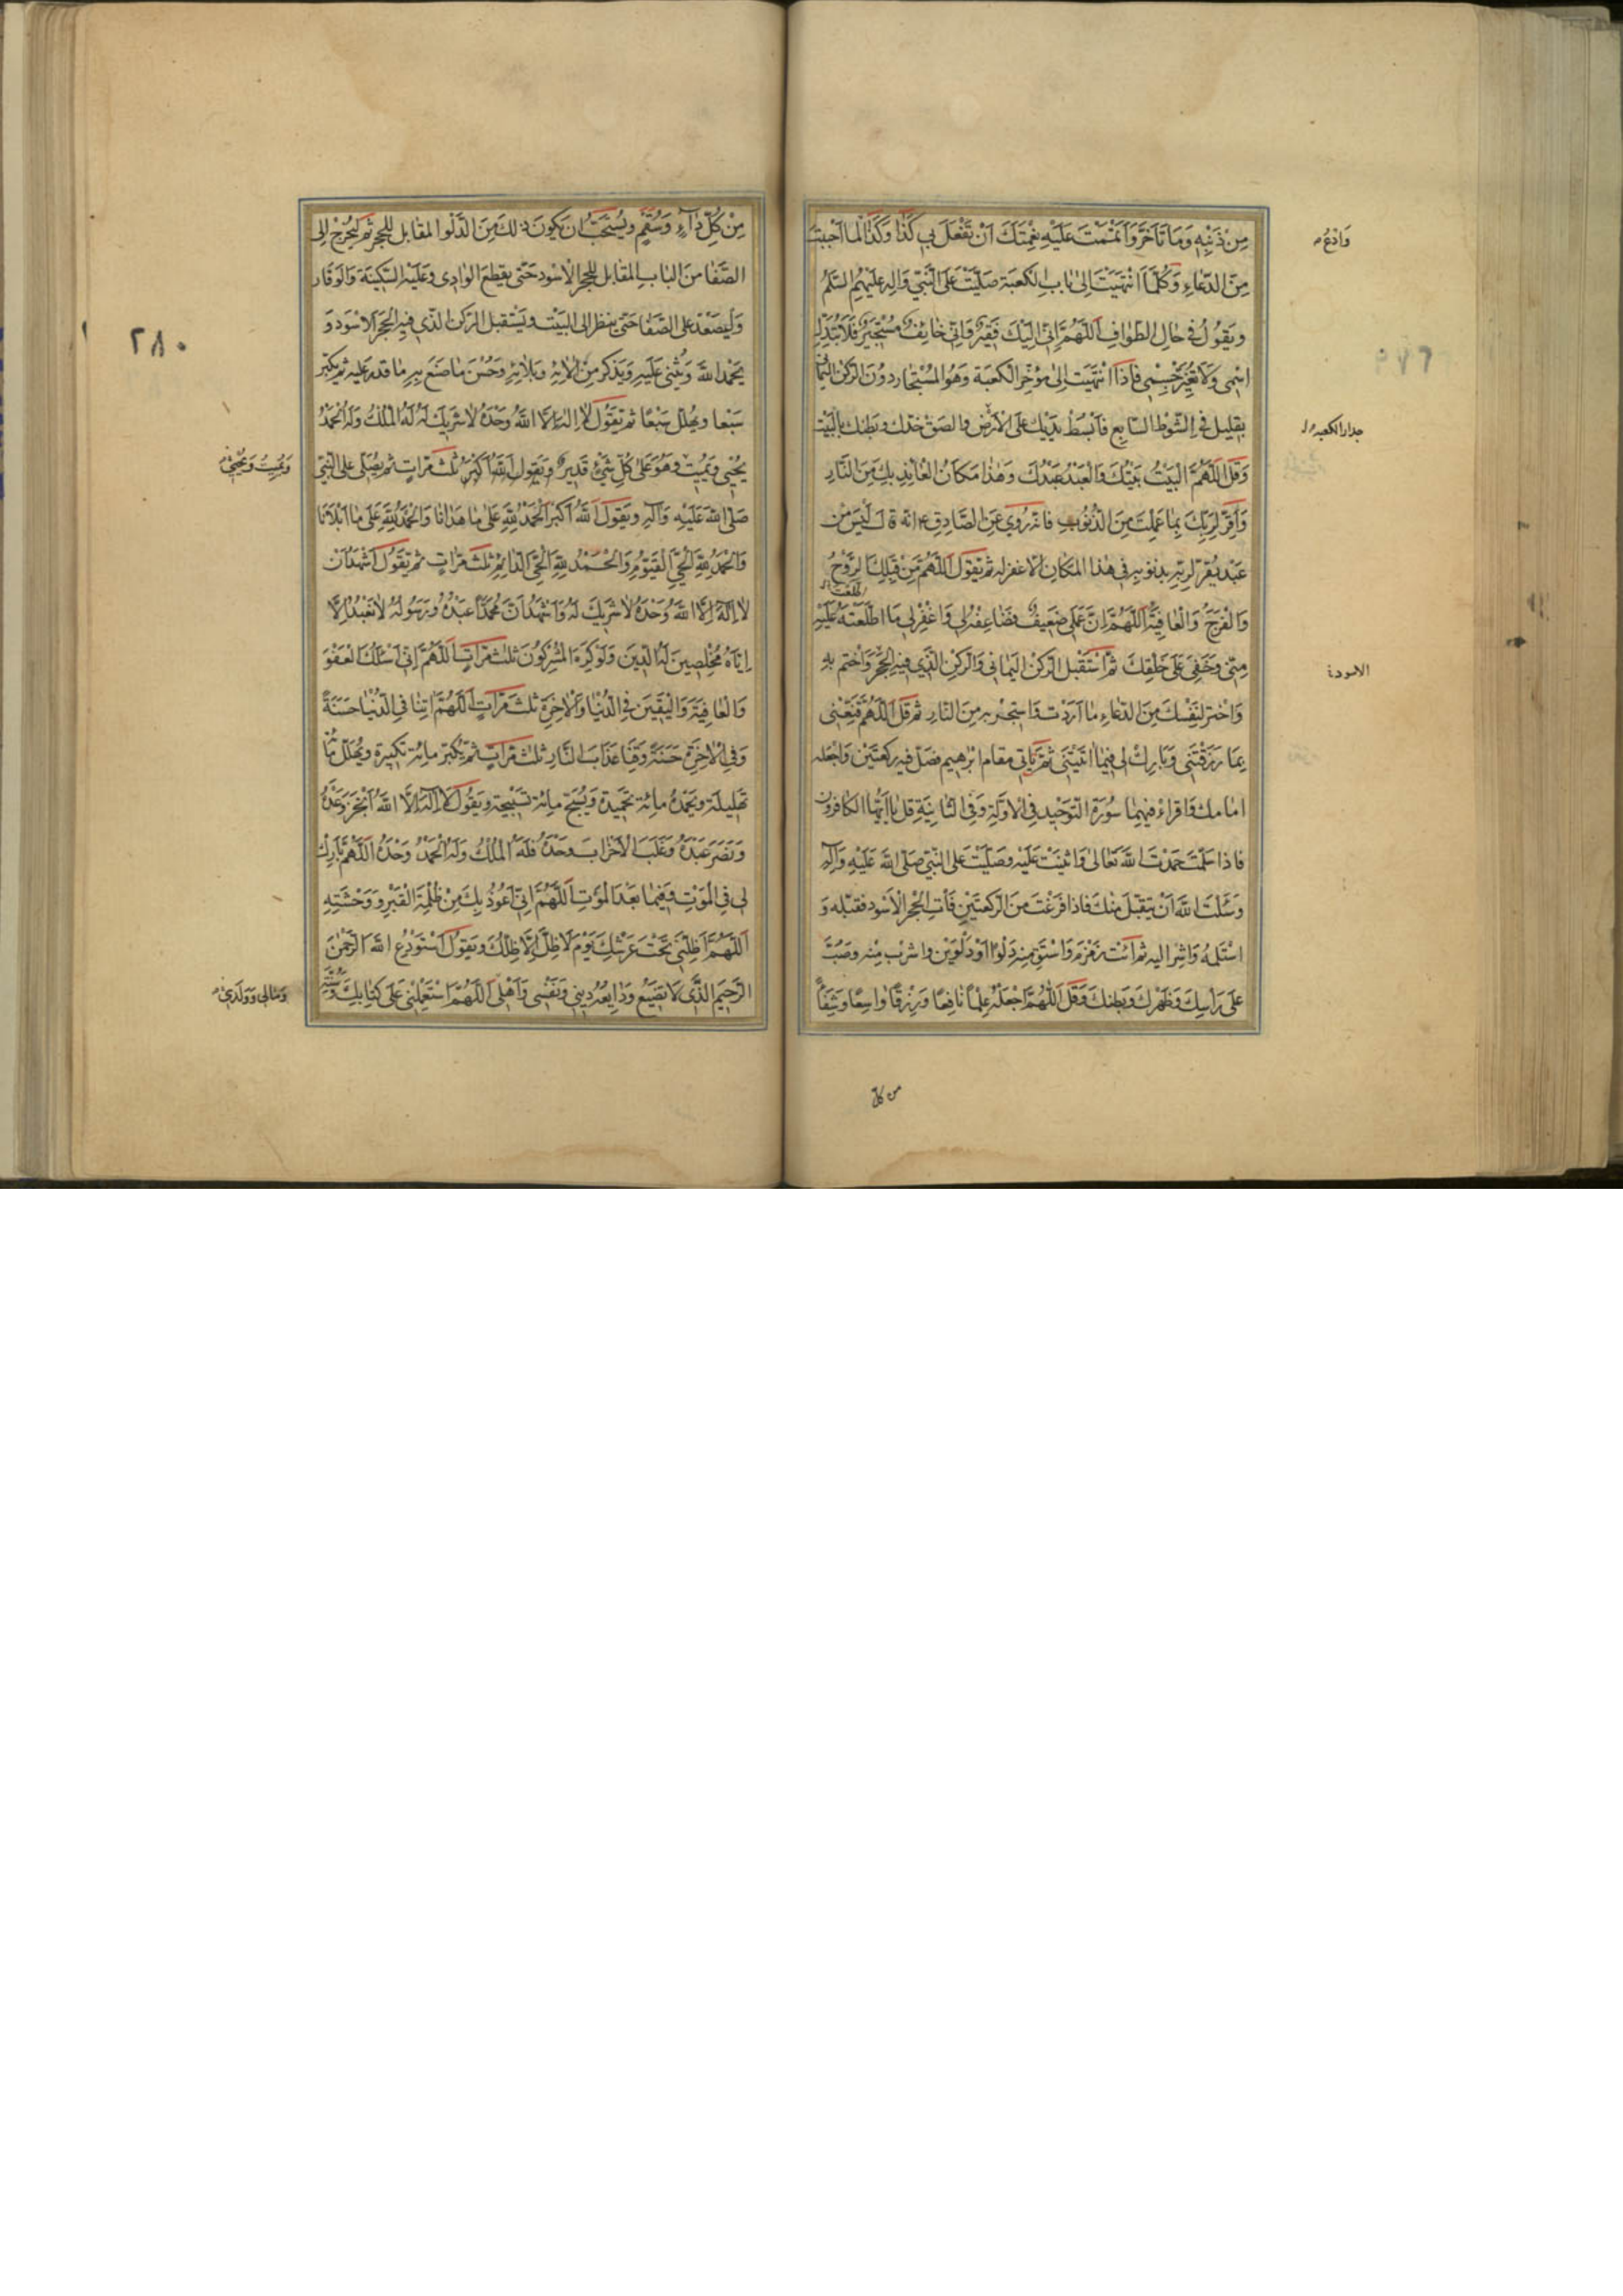 مِنْ ذَنْبِهِ وَمَا تَأَخَّرَ وَأَتْمَمْتَ عَلَيْهِ نِعْمَتَكَ اَنْ تَفْعَلَ بِي كَذَا وَكَذَا لما أحببت
وَادْعُ
مِنَ الدُّعَاءِ وَكُلَّمَا انْتَهَيْتَ اِلىٰ بابِ الكَعبَة صَلَّيْتَ عَلَى النَّبِيّ وَالِه عَلَيْهِمُ السَّلمُ
ويَقُولُ فى حالِ الطوافِ اَللّهُمَّ اِنّى اِلَيْكَ فَقِيرٌ وَاِنّى خائِفٌ مُسْتَجِيرٌ فَلَا تُبَدِّلِ
اسْمِى وَلَا تُغَيِّرْ جِسْمِى فَاِذَا انْتَهَيْتَ اِلىٰ مُؤَخَّرِ الكَعبَة وَهُوَ المُسْتَجار دوُنَ الرّكْنِ اليمانى
بِقليل فِى الشَّوْطِ السّابِعِ فَابْسُطْ يَدَيْكَ عَلَى الاَرْضِ والصَقْ خَدّك وبَطنك بِالبَيْتِ
جدار الكعبه
وَقُلْ اَللّهُمَّ الْبَيْتُ بَيْتُكَ وَالْعَبْدُ عَبْدُكَ وَهٰذا مَكَانُ الْعَائِذِ بِكَ مِنَ النَّارِ
وَاَقِرَّ لِرَبِّكَ بِمَا عَمِلْتَ مِنَ الذُّنُوبِ فَانه رُوِىَ عَنِ الصَّادِقِ ع انه ق لَ لَيْسَ من
عَبْد يُقِرّ لِرَبِّه بِذنوبِه فى هٰذا المَكانِ اِلّا غفرله ثم تَقول اَللّهُمَّ مِنْ قِبَلِكَ الرَّوْحُ
وَالْفَرَجُ وَالْعَافِيَةُ اَللّهُمَّ اِنَّ عَمَلِى ضَعِيفٌ فَضَاعِفْهُ لِى وَاغْفِرْ لِى مَا اطَّلَعْتَ عَلَيْهِ
مِنّى وَخَفِىَ عَلىٰ خَلْقِكَ ثمّ اسْتَقْبِل الرّكْنَ اليَمانى وَالرّكن الَّذى فيهِ الحَجَر وَاختم بهِ
الاسود
وَاخْتَر لِنَفْسِكَ مِنَ الدّعاءِ ما اَرَدْت وَاستَجر به مِنَ النّارِ ثم قل اَللّهُمَّ قَنِّعْنِى
بِمَا رَزَقْتَنِى وَبَارِكْ لِى فِيمَا اٰتَيْتَنِى ثم يَأتى مقام ابْرٰهِيم فصَلّ فيه ركعتَيْن وَاجْعَله
امامك وَاقراء فيهِما سُورَة التّوحيد فى الاولَة وَفى الثانِيَةِ قل يا اَيّها الكافرون
فاذا سَلّمْتَ حَمدْتَ اللّهَ تَعَالىٰ وَاثنَيْت عَلَيْه وصَلّيتَ عَلَى النّبىّ صَلّى اللّهُ عَلَيْهِ وَآلِهِ
وَسَئَلتَ اللّهَ اَنْ يَتقبّلَ مِنْكَ فاذا فرَغْتَ مِنَ الرّكعتَيْنِ فَأتِ الحَجَرَ الْاَسْود فقبّله وَ
اسْتَلِمهُ وَاشِر اليه ثم ائت زمزم وَاسْتَقِ منه دَلْوًا اَوْ دَلْوَيْن واشرب مِنْه وصُبَّ
عَلىٰ رَأسِكَ وَظَهْرِكَ وَبَطنِكَ وَقُلْ اَللّهُمَّ اجْعَلْهُ عِلْمًا نافِعًا وَرِزْقًا وَاسِعًا وَشِفَآءً
من كل
مِنْ كُلِّ دٰآءٍ وَسُقْمٍ ويُسْتَحَبُّ ان يَكونَ ذٰلكَ مِنَ الدّلْو المقابل للحجر ثم ليَخرُجْ الى
الصّفا منَ البابِ المقابل للحجر الاسود حَتّى يقطع الوادِى وعَلَيْه السّكينَة وَالوَقار
وَليَصعَد عَلى الصّفا حَتّى ينظر الى البَيْت ويَسْتقبل الرّكن الذّى فيه الحَجَر الاسْوَد وَ
٢٨٠
يَحْمد اللّهَ وَيُثنى عَلَيهِ وَيَذكر مِنْ اٰلائِهِ وَبَلائِهِ وَحُسْنِ ما صَنَعَ بِه ما قدر عَليه ثم يكبّر
سَبعا ويهلّل سَبْعًا ثم يَقُول لا اِلهَ اِلّا اللّهُ وَحْدَهُ لا شَرِيكَ لَهُ لَهُ الْمُلْكُ وَلَهُ الْحَمْدُ
يُحْيِى وَيُمِيتُ وَهُوَ عَلىٰ كُلِّ شَىْءٍ قَدِيرٌ ويَقول اللّهُ اَكبَرُ ثلث مَرّات ثم يُصَلّى عَلى النّبىّ
وَيُمِيتُ وَيُحْيِى
صَلّى اللّهُ عَلَيْهِ وَآلِهِ ويَقول اَللّهُ اَكبَرُ اَلْحَمْدُ لِلّهِ عَلىٰ ما هَدٰانا وَالْحَمْدُ لِلّهِ عَلىٰ ما اَبْلَانَا
وَالْحَمْدُ لِلّهِ الْحَىِّ الْقَيُّومِ وَالْحَمْدُ لِلّهِ الْحَىِّ الدّائِمِ ثلثَ مَرّاتٍ ثم يَقول اَشْهَدُ اَنْ
لا اِلهَ اِلَّا اللّهُ وَحْدَهُ لا شَرِيكَ لَهُ وَاَشْهَدُ اَنَّ مُحَمَّدًا عَبْدُهُ وَرَسُولُهُ لا نَعْبُدُ اِلَّا
اِيّاهُ مُخْلِصِينَ لَهُ الدِّينَ وَلَوْ كَرِهَ الْمُشْرِكُونَ ثلث مَرّاتٍ اَللّهُمَّ اِنّى اَسْئَلُكَ الْعَفْوَ
وَالْعَافِيَةَ وَالْيَقِينَ فِى الدُّنْيَا وَالْاٰخِرَةِ ثلثَ مَرّاتٍ اَللّهُمَّ اٰتِنَا فِى الدُّنْيَا حَسَنَةً
وَفِى الْاٰخِرَةِ حَسَنَةً وَقِنَا عَذَابَ النَّارِ ثلثَ مَرّات ثم يُكبّر مائة تكبيرة ويُهَلّل مائة
تَهليلة وَيَحْمَدُ مائة تَحمِيدة وَيُسَبّح مائة تَسْبيحة وَيَقُول لا اِلهَ اِلَّا اللّهُ اَنْجَزَ وَعْدَهُ
وَنَصَرَ عَبْدَهُ وَغَلَبَ الْاَحْزَابَ وَحْدَهُ فَلَهُ الْمُلْكُ وَلَهُ الْحَمْدُ وَحْدَهُ اَللّهُمَّ بَارِكْ
لِى فِى الْمَوْتِ وَفِيمَا بَعْدَ الْمَوْتِ اَللّهُمَّ اِنّى اَعُوذُ بِكَ مِنْ ظُلْمَةِ الْقَبْرِ وَوَحْشَتِهِ
اَللّهُمَّ اَظِلَّنِى تَحْتَ عَرْشِكَ يَوْمَ لَا ظِلَّ اِلَّا ظِلُّكَ ويَقُول اَسْتَوْدِعُ اللّهَ الرَّحْمٰنَ
الرَّحِيمَ الَّذِى لَا تَضِيعُ وَدَايِعُهُ دِينِى وَنَفْسِى وَاَهْلِى اَللّهُمَّ اسْتَعْمِلْنِى عَلىٰ كِتَابِكَ وَسُنَّةِ
وَمَالِى وَوَلَدِى